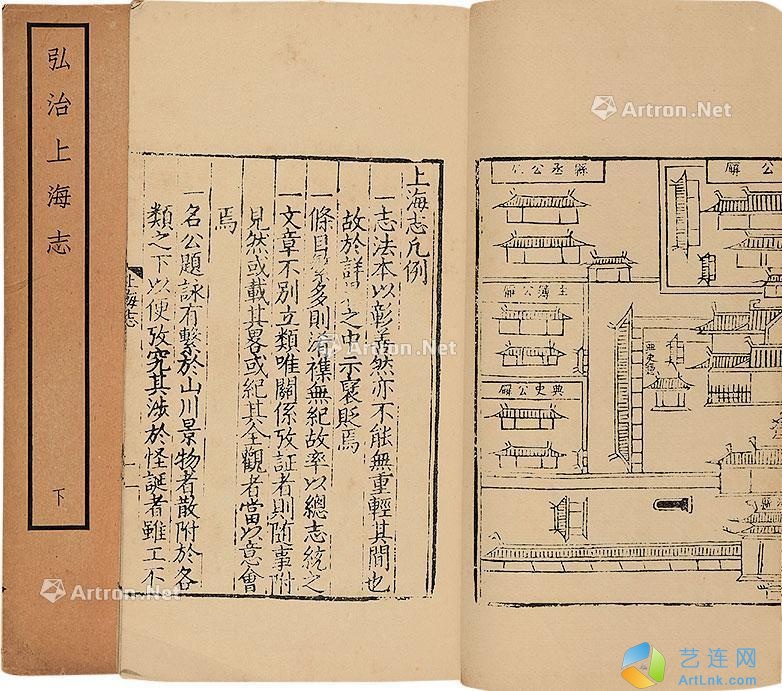 弘治上海志
下
上海志凡例
一志法本以彰善然亦不能無重輕其間也
故於詳之中示褒貶焉
一條目多則湻襍無紀故率以總志統之
一文章不別立類唯關係攷証者則随事附
見然或載其畧或紀其全觀者當以意會
焉
一名公題詠有繫於山川景物者散附於各
類之下以便攷究其涉於怪誕者雖工不
上海志
縣丞公
公廨
主簿公廨
典史公廨
Artron.Net
Artron.Net
Artron.Net
Artron.Net
艺连网
ArtLnk.com